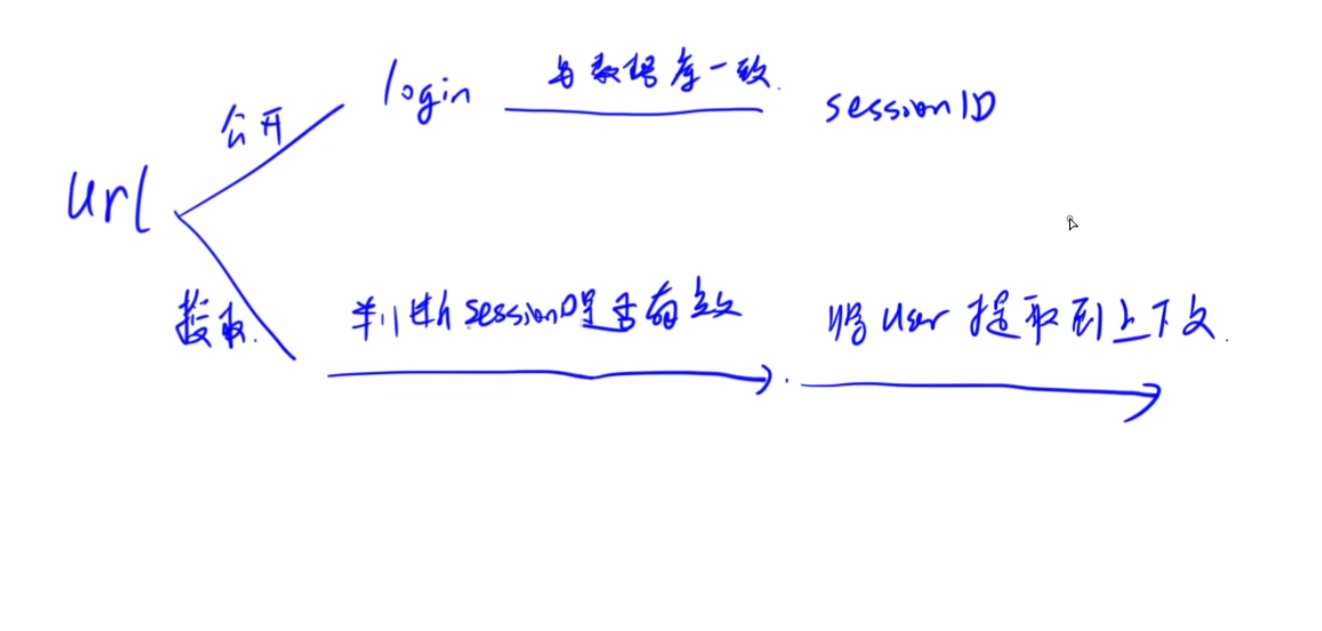 公开
login
与数据库一致.
sessionID
url
授权.
判断sessionID是否有效
将user提取到上下文.